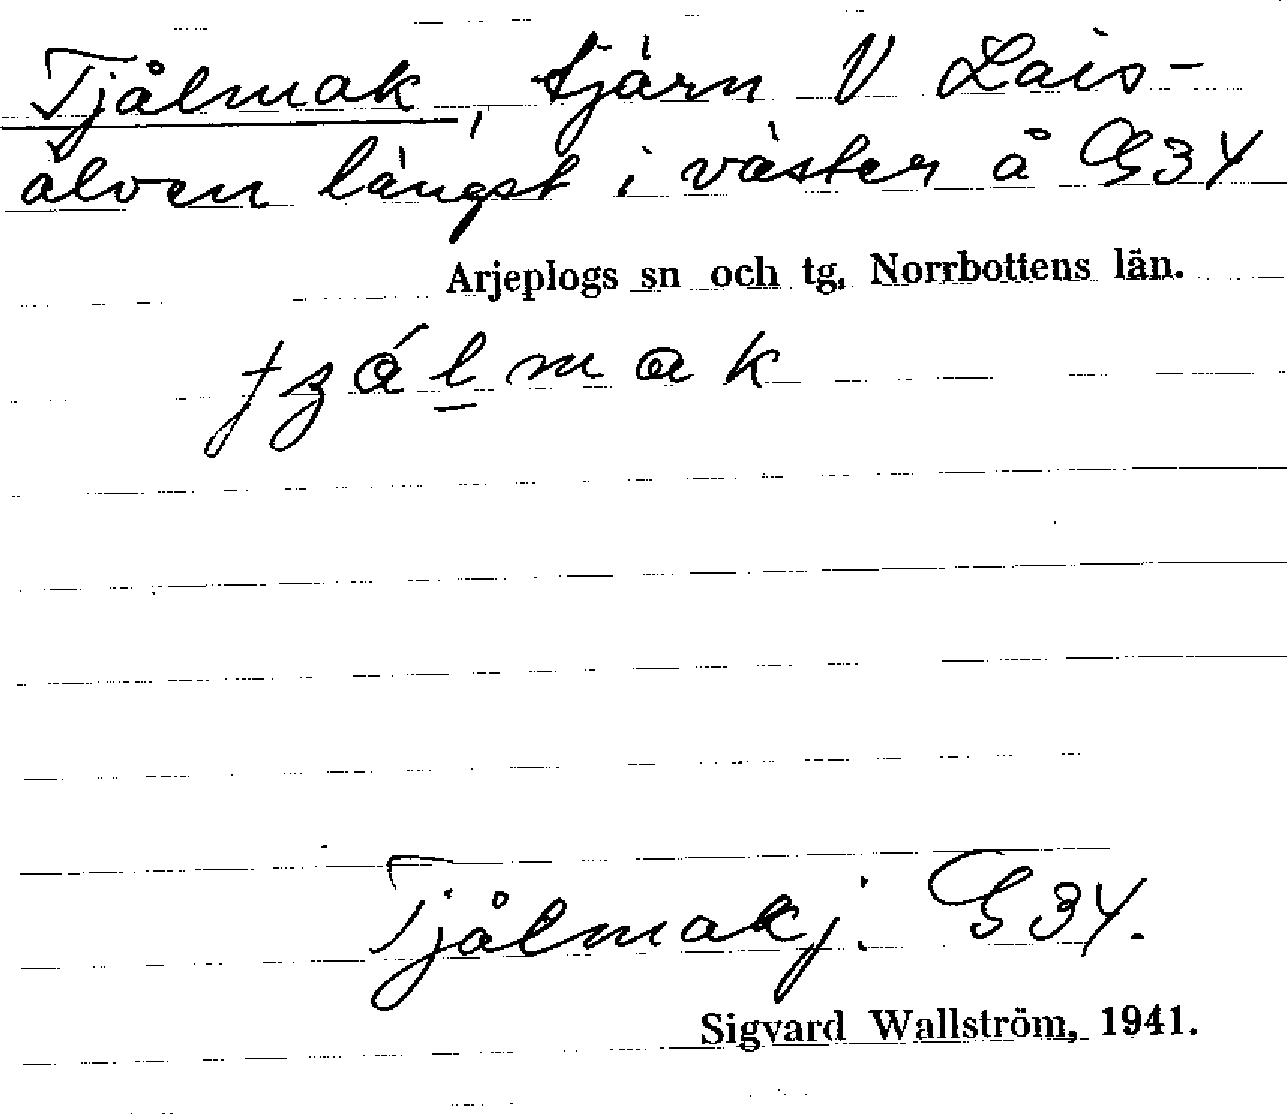 Tjålmak, tjärn V Lais-
älven längst i väster å G34
Arjeplogs sn och tg, Norrbottens län.
tʒålmak
Tjålmakj. G34.
Sigvard Wallström, 1941.